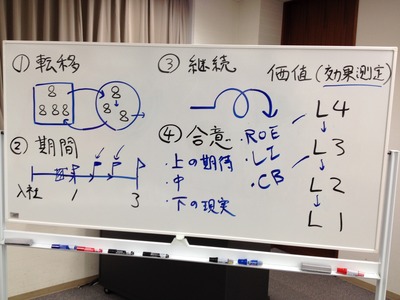 ① 転移
8
8 8 8
8
8 8
8 8
② 期間
入社
1
3
③ 継続
④ 合意
・上の期待
・中
・下の現実
・ROE
・LI
・CB
価値 (効果測定)
L4
L3
L2
L1